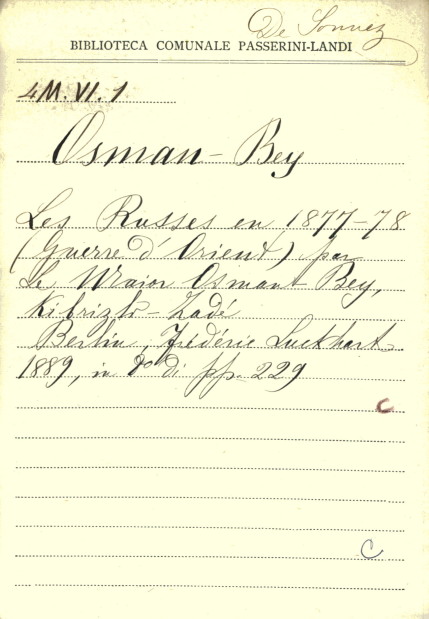 De Sonnez
BIBLIOTECA COMUNALE PASSERINI-LANDI
4M.VI.1
Osman-Bey
Les Russes en 1877-78
(Guerre d'Orient) par
Le Maior Osman-Bey,
Kibrizli-Zadé
Berlin, Frédéric Luckhart
1889, in 8º di pp. 229
C
C